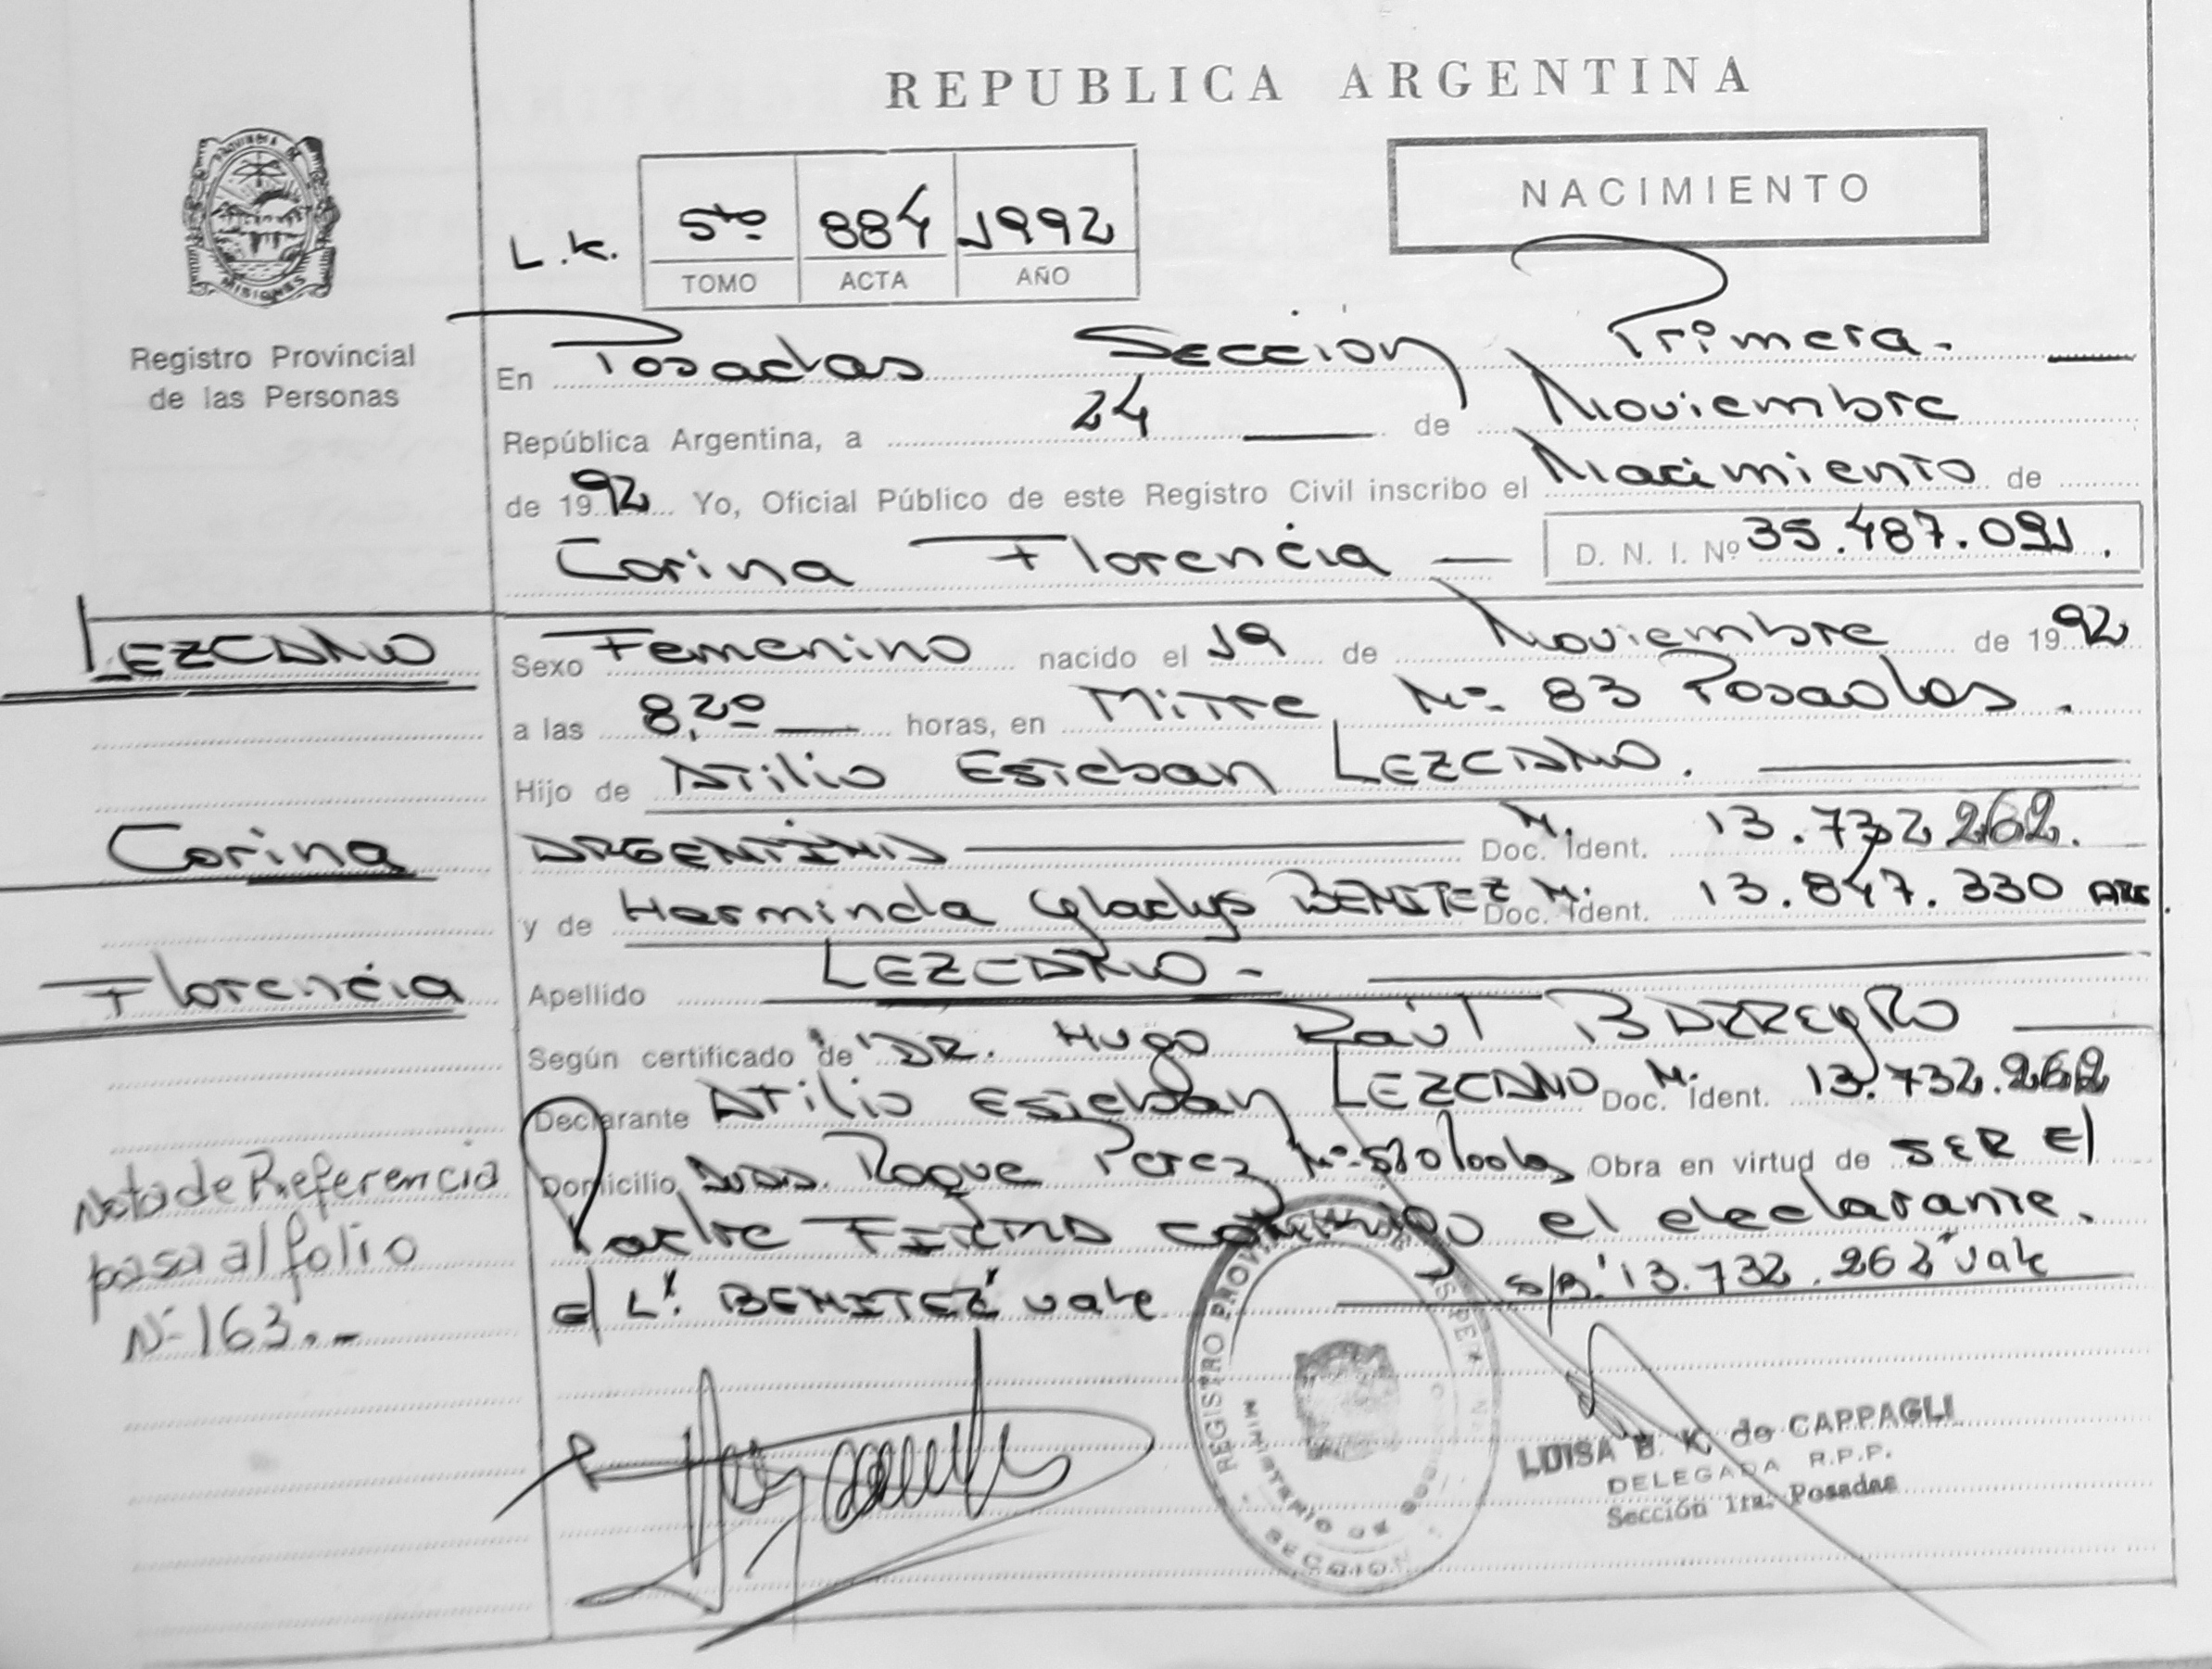 REPUBLICA ARGENTINA
PROVINCIA DE MISIONES
Registro Provincial
de las Personas
NACIMIENTO
L.K. 5to 884 1992
TOMO ACTA AÑO
En Posadas Sección Primera.
República Argentina, a 24 de Noviembre
de 1992 Yo, Oficial Público de este Registro Civil inscribo el Nacimiento de
Corina Florencia D. N. I. Nº 35.487.091.
LEZCANO
Corina
Florencia
Sexo Femenino nacido el 19 de Noviembre de 1992
a las 8,20 horas, en Mitre Nº 83 Posadas.
Hijo de Atilio Esteban LEZCANO.
ARGENTINA M. Doc. Ident. 13.732 262.
y de Herminda Gladys BENITEZ M. Doc. Ident. 13.847.330 ARG.
Apellido LEZCANO-
Según certificado de DR. Hugo Raúl BARREYRO
Declarante Atilio Esteban LEZCANO M. Doc. Ident. 13.732.262
Domicilio Roque Perez Obra en virtud de SER El
Padre FIRMA conmigo el declarante.
e/ L. "BENITEZ" vale s/r. "13.732.262" vale
Nota de Referencia
pasa al folio
Nº 163.-
REGISTRO PROVINCIAL DE LAS PERSONAS
MINISTERIO DE GOBIERNO
SECCION
LUISA B. K. de CAPPAGLI
DELEGADA R.P.P.
Sección 1ra. Posadas